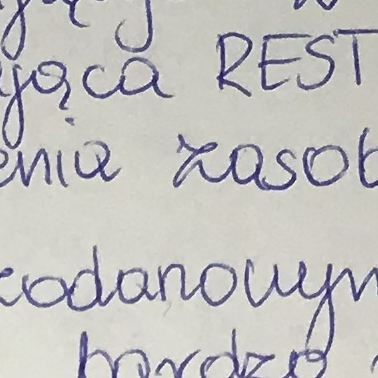 jąca REST
enia zasob
zodanowym
bardzo